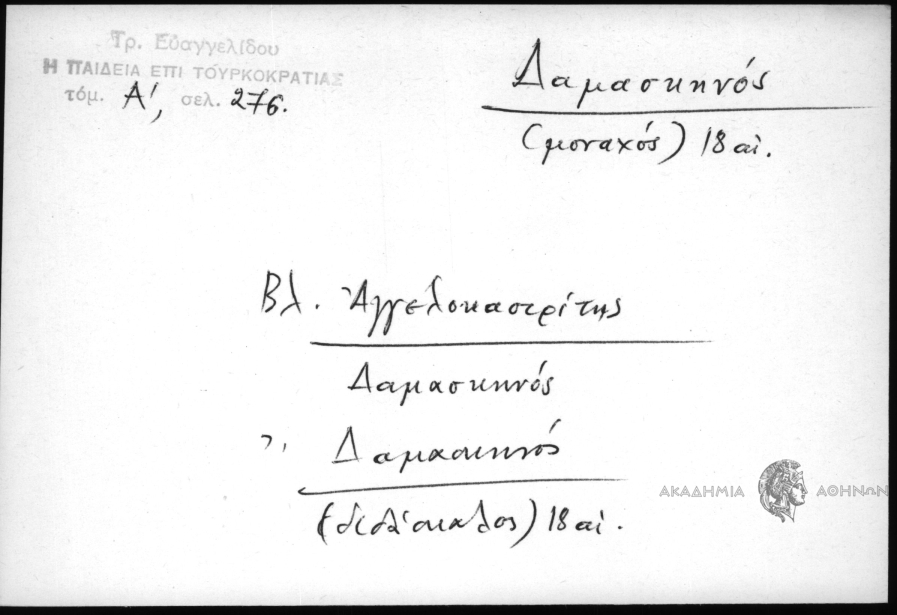 Τρ. Εὐαγγελίδου
Η ΠΑΙΔΕΙΑ ΕΠΙ ΤΟΥΡΚΟΚΡΑΤΙΑΣ
τόμ. Α', σελ. 276.
Δαμασκηνός
(μοναχός) 18 αἰ.
Βλ. Ἀγγελοκαστρίτης
Δαμασκηνός
〃 Δαμασκηνός
(διδάσκαλος) 18 αἰ.
ΑΚΑΔΗΜΙΑ ΑΘΗΝΩΝ